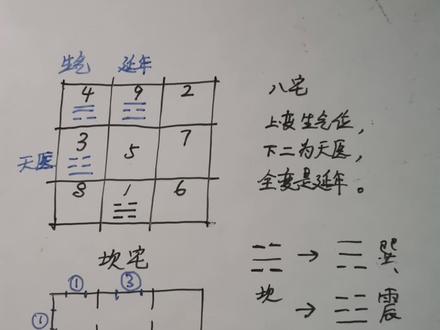 生气 延年
4 9 2
天医 3 5 7
8 1 6
坎宅
① ③
①
八宅
上变生气位，
下二为天医，
全变是延年。
☵ → ☴ 巽
坎 → ☳ 震